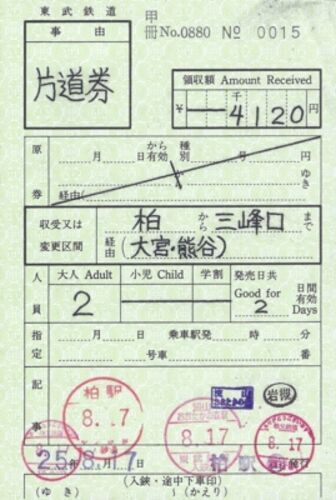 東武鉄道
甲
冊 No.0880 № 0015
事由
片道券
領収額 Amount Received
千
¥ 4120 円
原券
月 日 から有効 種別 号 円
から ゆき
経由
収受又は変更区間
柏 から 三峰口 まで
経由 (大宮・熊谷)
人員
大人 Adult 小児 Child 学割
2
発売日共
Good for 2 日間有効 Days
指定
月 日 乗車駅発 時 分
号車 番
記事
柏駅
8.-7
8.17
8.17
岩槻
25年8月-7日
柏駅
発行
(入鋏・途中下車印)
(ゆき) ~(かえり)